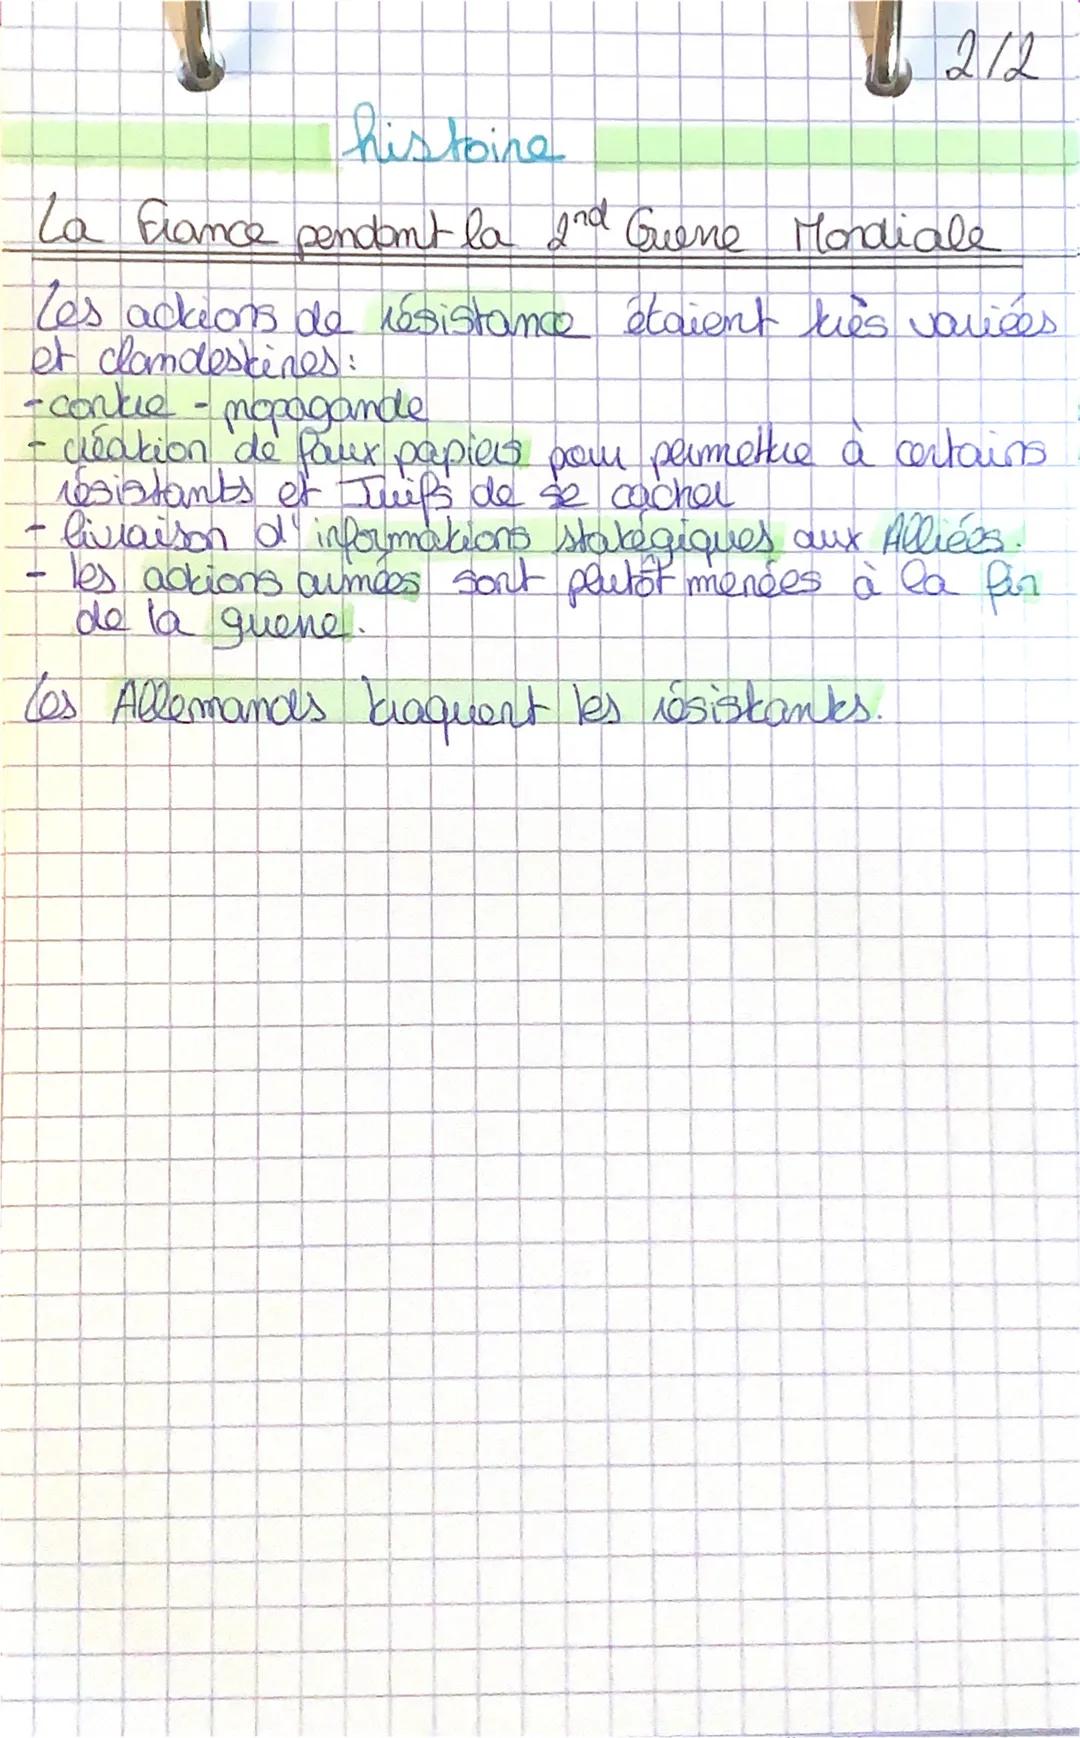 2/2
histoire
La France pendant la 2nd Guerre Mondiale
Les actions de résistance étaient très variées
et clandestines :
- contre - propagande
- création de faux papiers pour permettre à certains
résistants et Juifs de se cacher
- livraison d'informations statégiques aux Alliées.
- les actions armées sont plutôt menées à la fin
de la guerre.
Les Allemands traquent les résistants.